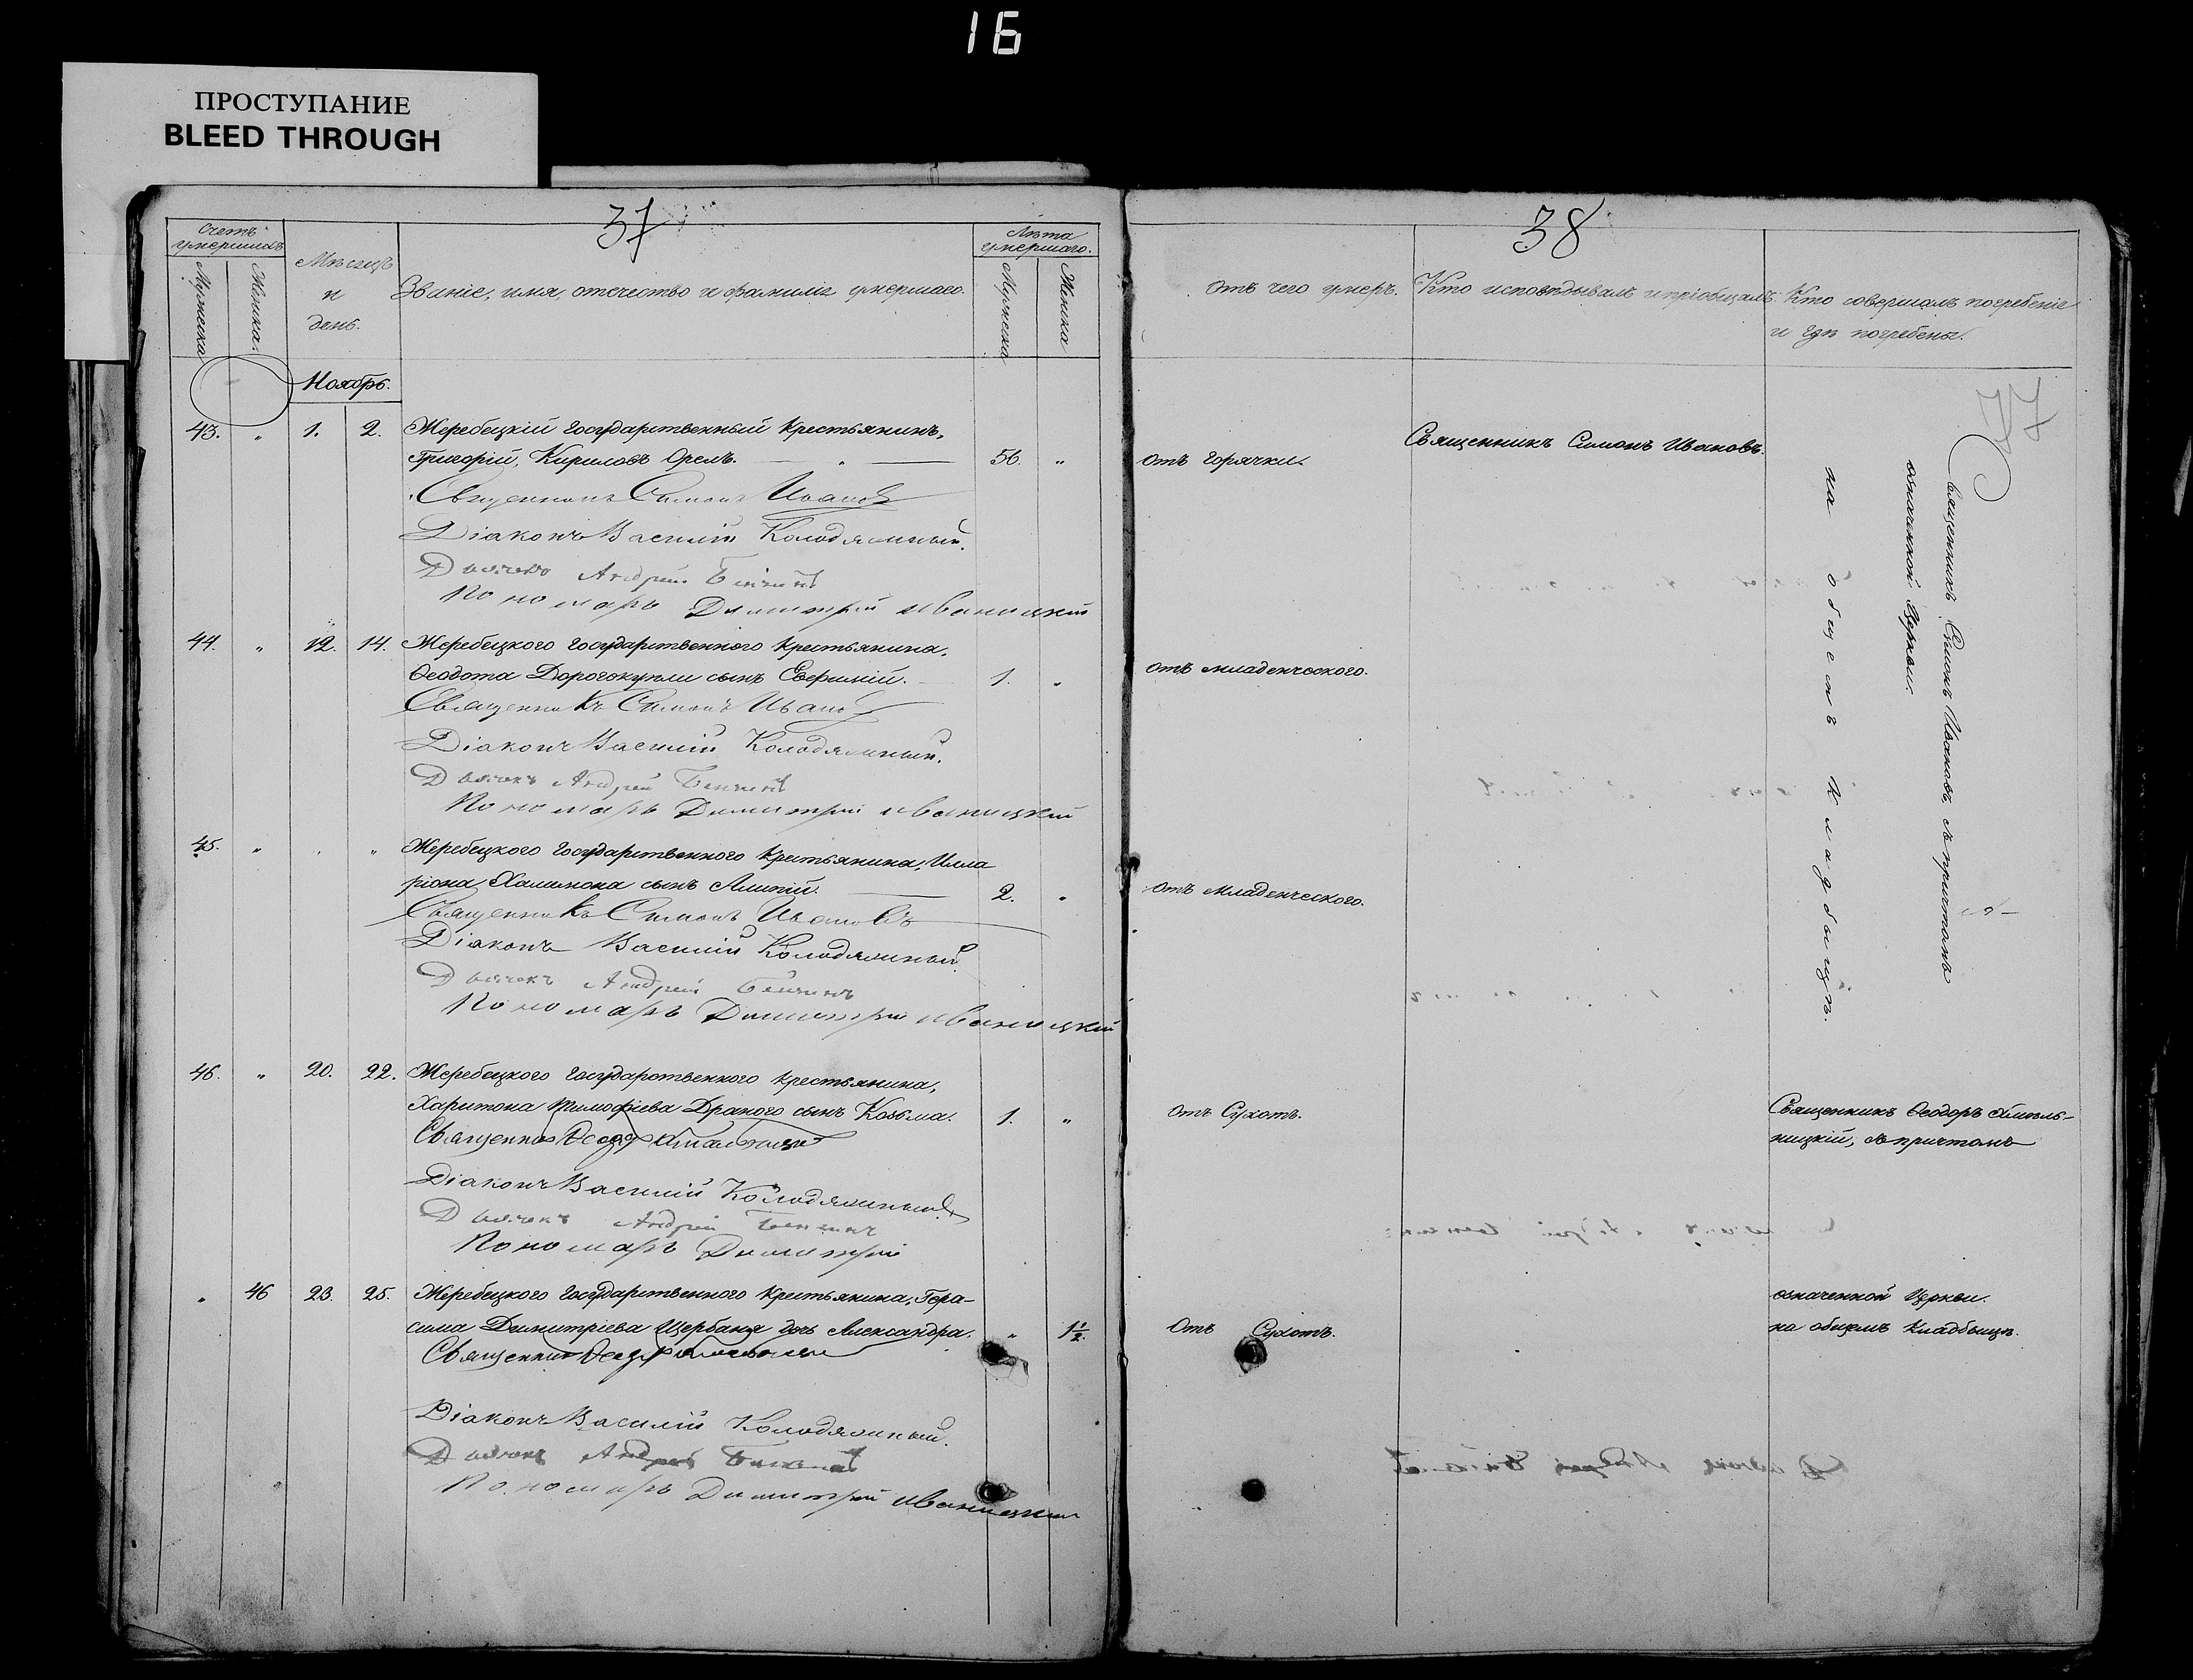 16
ПРОСТУПАНИЕ
BLEED THROUGH
37
Счетъ умершихъ
Мужеска
Женска.
Мѣсяцъ
и
день.
Званіе, имя, отечество и фамилія умершаго.
Лѣта умершаго.
Мужеска
Женска
Ноябрь.
43. " 1. 2. Жеребецкій государственный крестьянинъ,
Григорій, Кириловъ Орелъ. 56. "
Священникъ Симонъ Ивановъ
Діаконъ Василій Колодяжный.
Дьячокъ Андрей
Пономарь Димитрій Иваницкій
44. " 12. 14. Жеребецкого государственного крестьянина,
Ѳеодота Дорогокупли сынъ Евфимій. 1. "
Священникъ Симонъ Ивановъ
Діаконъ Василій Колодяжный.
Дьячокъ Андрей
Пономарь Димитрій Иваницкій
45. " " " Жеребецкого государственного крестьянина, Илла
ріона Халимона сынъ Алипій. 2. "
Священникъ Симонъ Ивановъ
Діаконъ Василій Колодяжный.
Дьячокъ Андрей
Пономарь Димитрій Иваницкій
46. " 20. 22. Жеребецкого государственного крестьянина,
Харитона Тимофіева Драного сынъ Козьма. 1. "
Священникъ Ѳеодоръ
Діаконъ Василій Колодяжный.
Дьячокъ Андрей
Пономарь Димитрій
" 46 23. 25. Жеребецкого государственного крестьянина, Гера-
сима Димитріева Щербаня дочь Александра. " 1½.
Священникъ Ѳеодоръ
Діаконъ Василій Колодяжный.
Дьячокъ Андрей
Пономарь Димитрій Иваницкій
38
Отъ чего умеръ.
Кто исповѣдывалъ и пріобщалъ.
Кто совершалъ погребеніе
и гдѣ погребены.
отъ горячки.
Священникъ Симонъ Ивановъ.
Священникъ Симонъ Ивановъ, съ причтомъ
означенной Церкви.
на общемъ кладбыщѣ.
отъ младенческого.
отъ младенческого.
отъ Сухотъ.
Священникъ Ѳеодоръ Хмѣль-
ницкій, съ причтомъ
отъ Сухотъ.
означенной Церкви.
на общемъ кладбыщѣ.